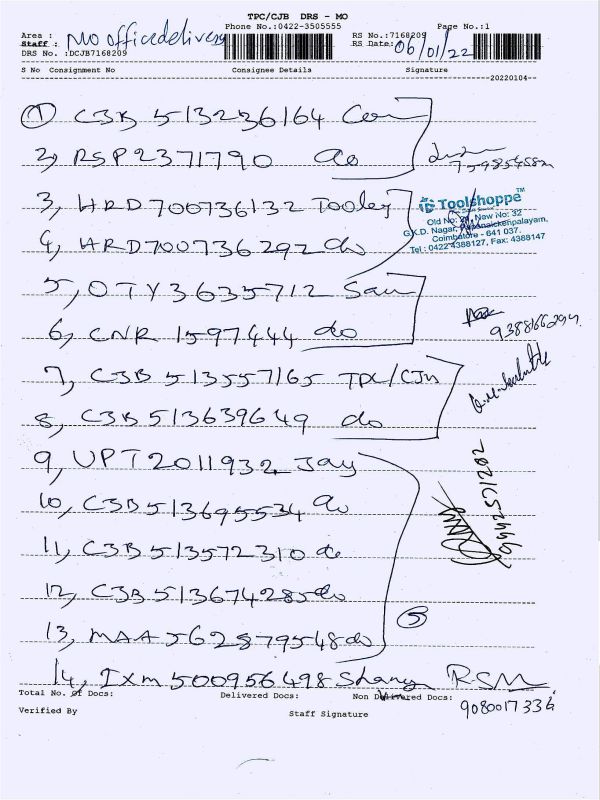 TPC/CJB DRS - MO
Phone No.:0422-3505555 Page No.:1
Area : RS No.:7168209
Staff : Mo office delivery RS Date: 06/01/22
DRS No. :DCJB7168209
S No Consignment No Consignee Details Signature
20220104
1 C3B 513236164
2, RSP2371790 do
3, HRD700736132 Tooley
Toolshoppe™
Old No: New No: 32
G.K.D. Nagar, Pappanaickenpalayam,
Coimbatore - 641 037.
Tel : 0422-4388127, Fax: 4388147
4, HRD700736292 do
5, OTY3635712 San
6, CNR 1597444 do
7, C3B 513557165 TPC/CJB
8, C3B 513639649 do
9, UPT2011932 Jay
10, C3B513695534 do
11, C3B513572310 do
12, C3B513674285 do
5
13, MAA562879548 do
14, IXM500956498 RSM
Total No. Of Docs: Delivered Docs: Non Delivered Docs:
Verified By Staff Signature